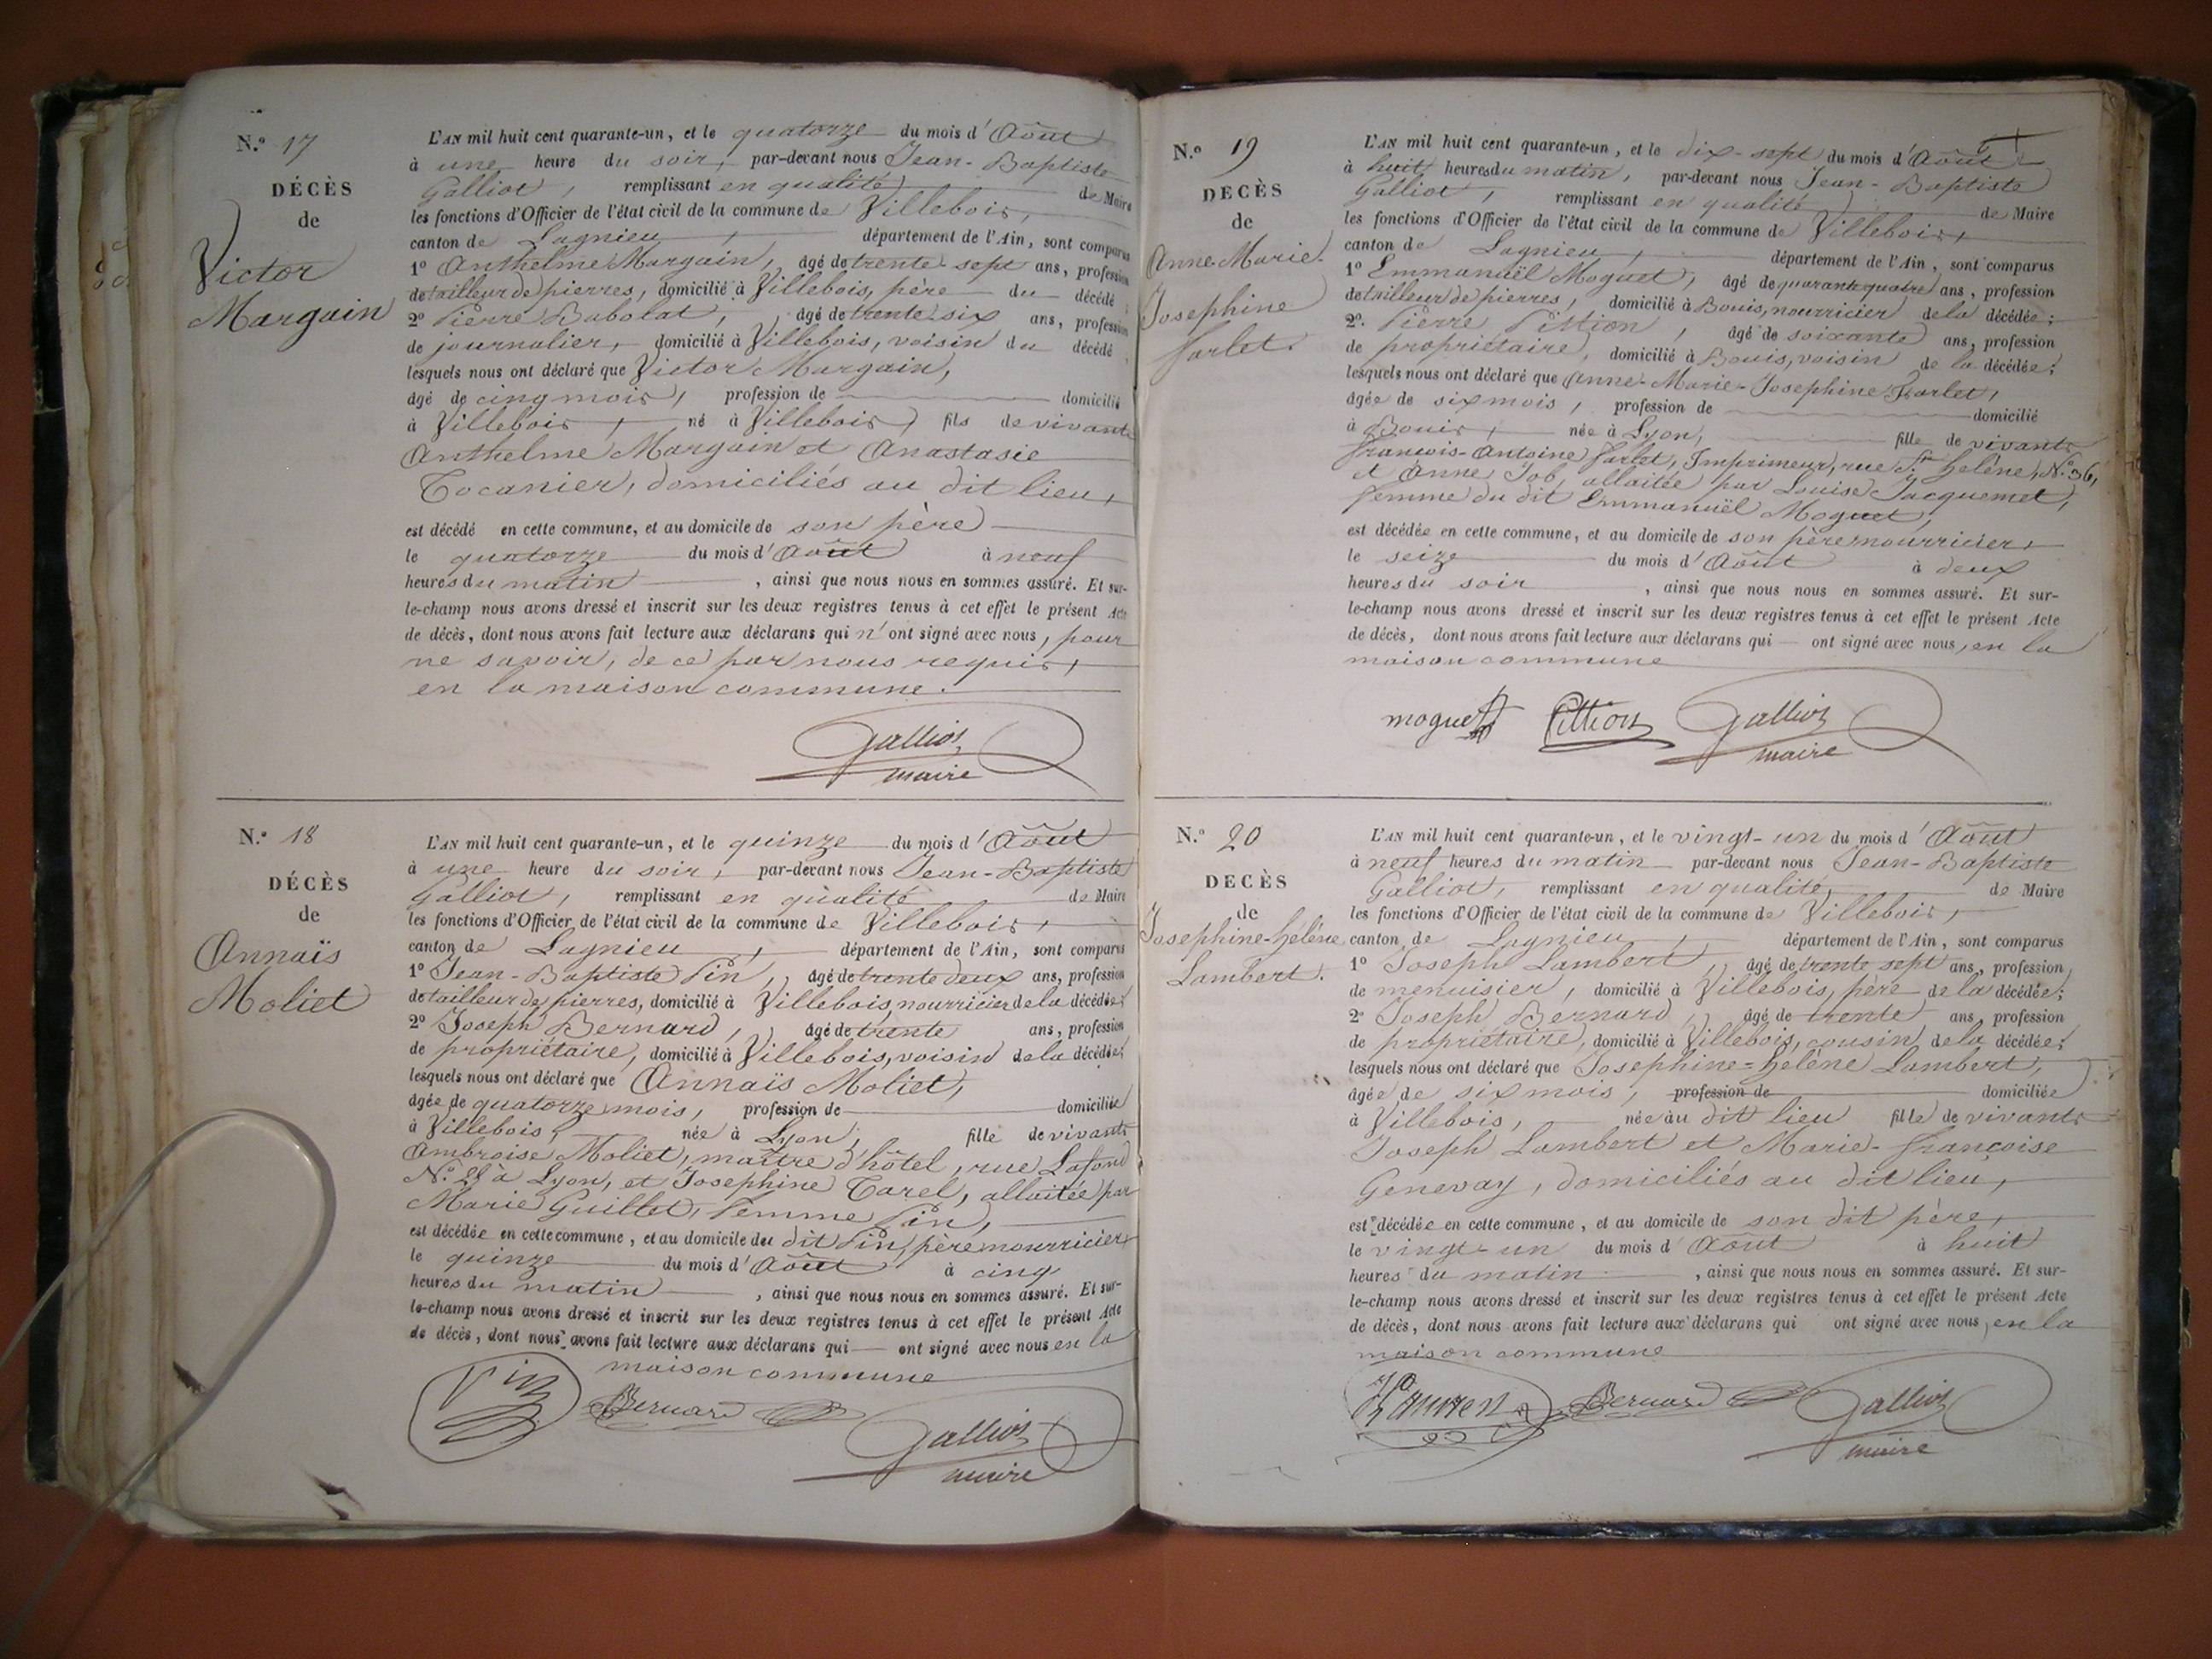 N.º 17
DÉCÈS
de
Victor
Margain
L'AN mil huit cent quarante-un, et le quatorze du mois d'Août
à une heure du soir, par-devant nous Jean-Baptiste
Galliot, remplissant en qualité de Maire
les fonctions d'Officier de l'état civil de la commune de Villebois,
canton de Lagnieu, département de l'Ain, sont comparus
1º Anthelme Margain, âgé de trente-sept ans, profession
de tailleur de pierres, domicilié à Villebois, père du décédé
2º Pierre Babolat, âgé de trente six ans, profession
de journalier, domicilié à Villebois, voisin du décédé,
lesquels nous ont déclaré que Victor Margain,
âgé de cinq mois, profession de domicilié
à Villebois, né à Villebois, fils de vivants
Anthelme Margain et Anastasie
Tocanier, domiciliés au dit lieu,
est décédé en cette commune, et au domicile de son père
le quatorze du mois d'Août à neuf
heures du matin, ainsi que nous nous en sommes assuré. Et sur-
le-champ nous avons dressé et inscrit sur les deux registres tenus à cet effet le présent Acte
de décès, dont nous avons fait lecture aux déclarans qui n'ont signé avec nous, pour
ne savoir, de ce par nous requis,
en la maison commune.
Galliot
maire
N.º 18
DÉCÈS
de
Annaïs
Moliet
L'AN mil huit cent quarante-un, et le quinze du mois d'Août
à une heure du soir, par-devant nous Jean-Baptiste
Galliot, remplissant en qualité de Maire
les fonctions d'Officier de l'état civil de la commune de Villebois,
canton de Lagnieu, département de l'Ain, sont comparus
1º Jean-Baptiste Pin, âgé de trente deux ans, profession
de tailleur de pierres, domicilié à Villebois, nourricier de la décédée;
2º Joseph Bernard, âgé de trente ans, profession
de propriétaire, domicilié à Villebois, voisin de la décédée;
lesquels nous ont déclaré que Annaïs Moliet,
âgée de quatorze mois, profession de domiciliée
à Villebois, née à Lyon, fille de vivants
Ambroise Moliet, maître d'hôtel, rue Lafond
N.º 28 à Lyon, et Josephine Tarel, allaitée par
Marie Guillet, femme Pin,
est décédée en cette commune, et au domicile du dit Pin, père nourricier,
le quinze du mois d'Août à cinq
heures du matin, ainsi que nous nous en sommes assuré. Et sur-
le-champ nous avons dressé et inscrit sur les deux registres tenus à cet effet le présent Acte
de décès, dont nous avons fait lecture aux déclarans qui ont signé avec nous en la
maison commune
Pin Bernard Galliot
maire
N.º 19
DÉCÈS
de
Anne-Marie-
Josephine
Farlet.
L'AN mil huit cent quarante-un, et le dix-sept du mois d'Août
à huit heures du matin, par-devant nous Jean-Baptiste
Galliot, remplissant en qualité de Maire
les fonctions d'Officier de l'état civil de la commune de Villebois,
canton de Lagnieu, département de l'Ain, sont comparus
1º Emmanuël Moguet, âgé de quarante quatre ans, profession
de tailleur de pierres, domicilié à Bouis, nourricier de la décédée;
2º. Pierre Pittion, âgé de soixante ans, profession
de propriétaire, domicilié à Bouis, voisin de la décédée;
lesquels nous ont déclaré que Anne-Marie-Josephine Farlet,
âgée de six mois, profession de domicilié
à Bouis, née à Lyon, fille de vivants
François-Antoine Farlet, Imprimeur, rue Ste Helène, N.º 36,
et Anne Job, allaitée par Louise Jacquemet,
femme du dit Emmanuël Moguet,
est décédée en cette commune, et au domicile de son père nourricier,
le seize du mois d'Août à deux
heures du soir, ainsi que nous nous en sommes assuré. Et sur-
le-champ nous avons dressé et inscrit sur les deux registres tenus à cet effet le présent Acte
de décès, dont nous avons fait lecture aux déclarans qui ont signé avec nous, en la
maison commune
moguet Pittion Galliot
maire
N.º 20
DÉCÈS
de
Josephine-Hélène
Lambert.
L'AN mil huit cent quarante-un, et le vingt-un du mois d'Août
à neuf heures du matin par-devant nous Jean-Baptiste
Galliot, remplissant en qualité de Maire
les fonctions d'Officier de l'état civil de la commune de Villebois,
canton de Lagnieu, département de l'Ain, sont comparus
1º Joseph Lambert, âgé de trente sept ans, profession
de menuisier, domicilié à Villebois, père de la décédée;
2º Joseph Bernard, âgé de trente ans, profession
de propriétaire, domicilié à Villebois, cousin de la décédée;
lesquels nous ont déclaré que Josephine-Hélène Lambert,
âgée de six mois, profession de domiciliée
à Villebois, née au dit lieu fille de vivants
Joseph Lambert et Marie-Françoise
Genevay, domiciliés au dit lieu,
est décédée en cette commune, et au domicile de son dit père,
le vingt-un du mois d'Août à huit
heures du matin, ainsi que nous nous en sommes assuré. Et sur-
le-champ nous avons dressé et inscrit sur les deux registres tenus à cet effet le présent Acte
de décès, dont nous avons fait lecture aux déclarans qui ont signé avec nous, en la
maison commune
Bernard Galliot
maire